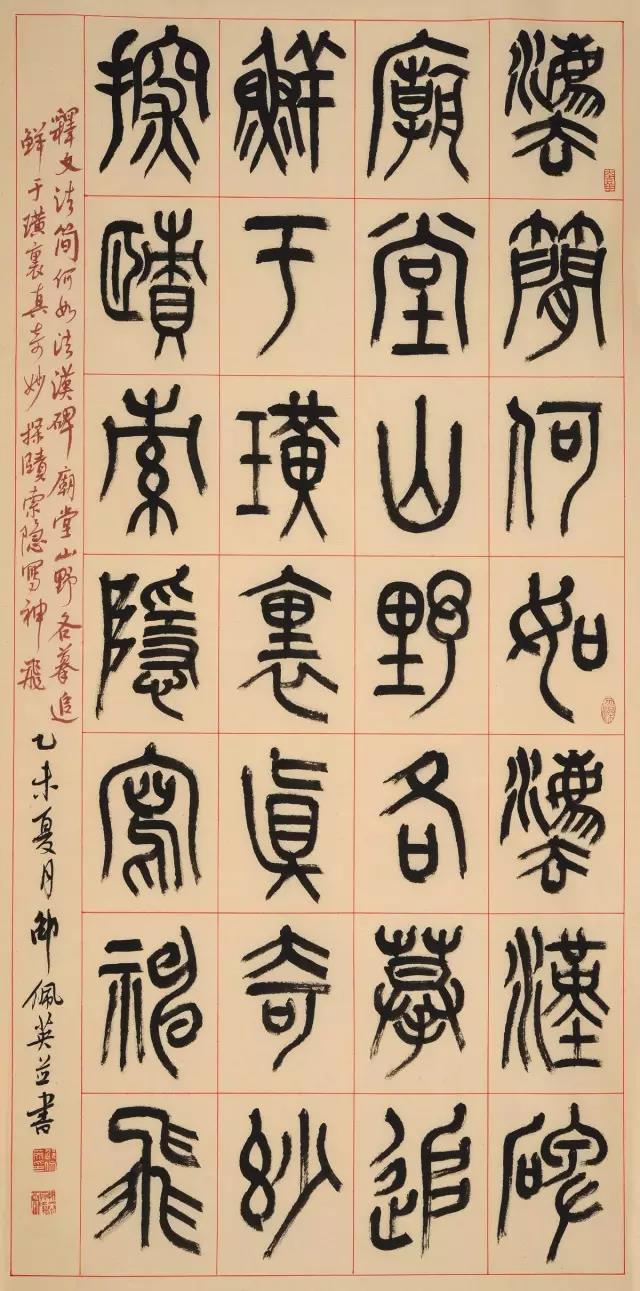 灋簡何如灋漢碑
廟堂山野各摹追
鮮于璜裏眞奇妙
探賾索隱寫神飛
釋文法简何如法漢碑廟堂山野各摹追
鮮于璜裏真奇妙探賾索隐寫神飛
乙未夏月佩英並書